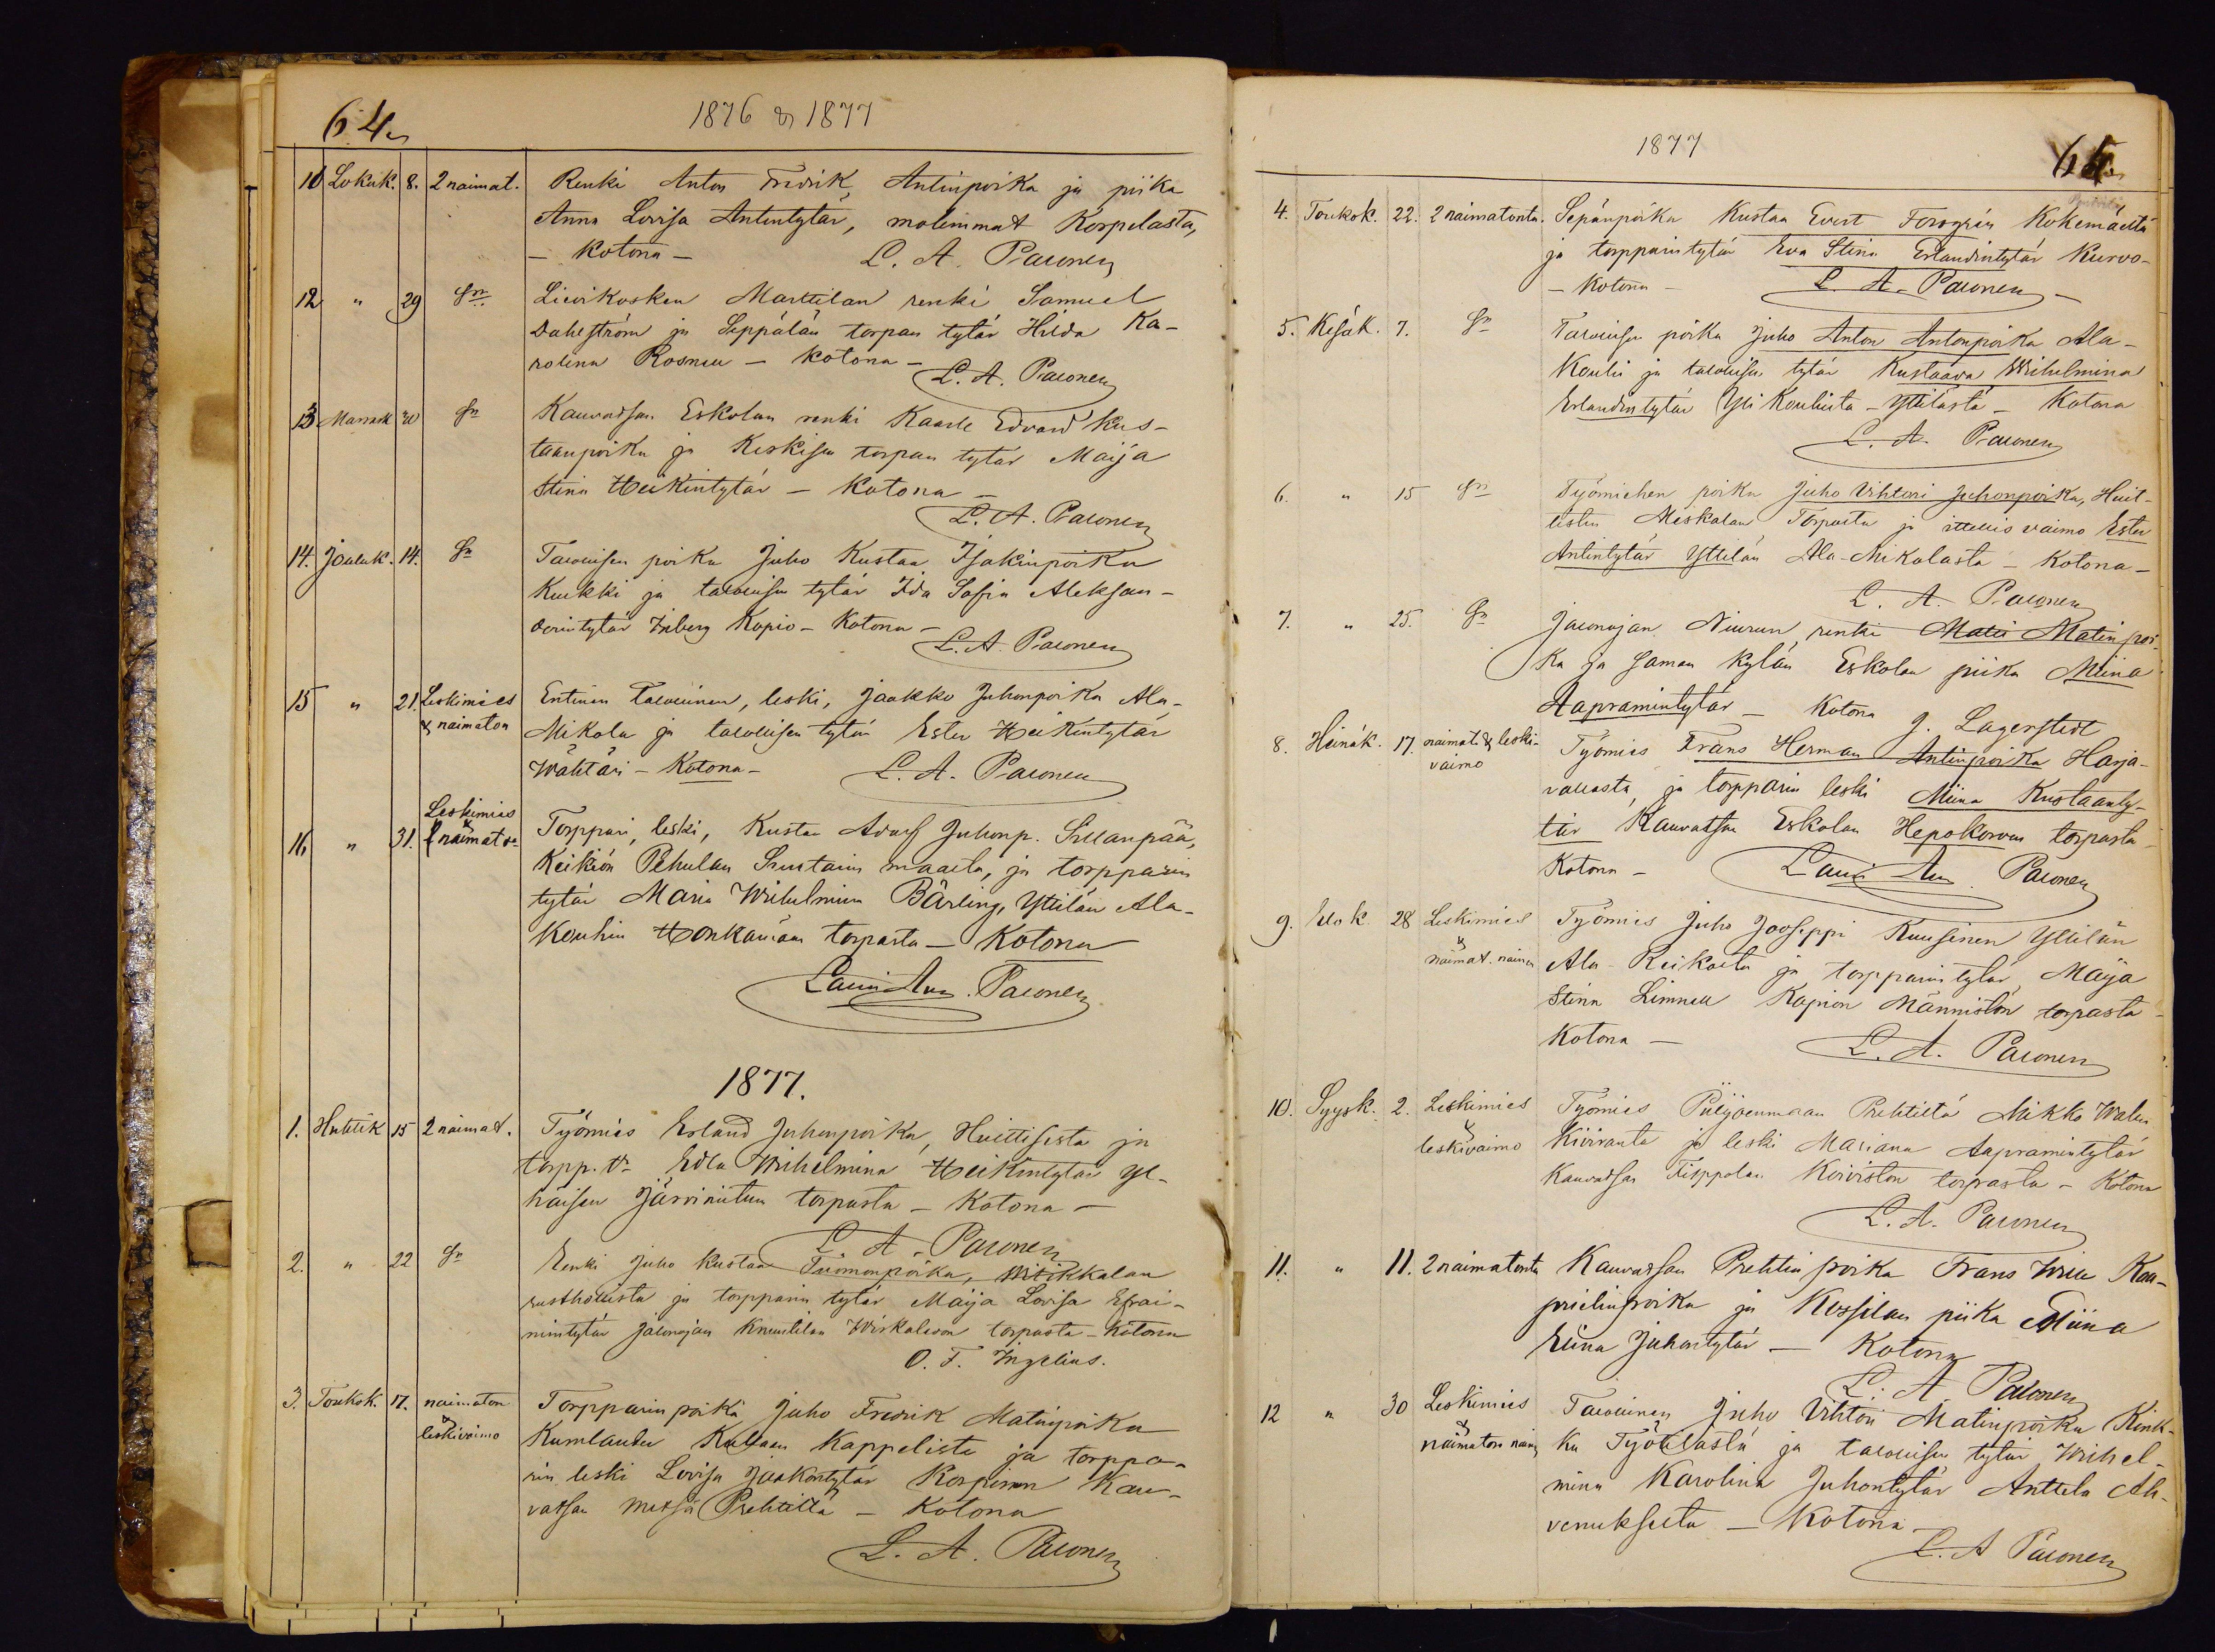 64.
1876 & 1877
10 Lokak. 8. 2 naimat. Renki Anton Fredrik Antinpoika ja piika
Anna Lovisa Antintytär, molemmat Korpelasta,
— Kotona — L. A. Paconen
12 " 29 Sn Lievikosken Marttilan renki Samuel
Dahlström ja Seppälän torpan tytär Hilda Ka-
rolina Rosnell — kotona —
L. A. Paconen
13 Marrask 20 Sn Kauvatsan Eskolan renki Kaarle Edvard Kus-
taanpoika ja Keskisen torpan tytär Maija
Stina Heikintytär — Kotona —
L. A. Paconen
14. Jouluk. 14. Sn Talollisen poika Juho Kustaa Isakinpoika
Kukki ja talollisen tytär Ida Sofia Aleksan-
derintytär Inberg Kopio — Kotona —
L. A. Paconen
15 " 21. Leskimies Entinen Talollinen, leski, Jaakko Juhonpoika Ala-
& naimaton Mikola ja talollisen tytär Ester Heikintytär
Wähtäri — Kotona — L. A. Paconen
Leskimies
16 " 31. & naimat. Torppari, leski, Kustaa Adolf Juhonp. Sillanpää,
Keikiön Pehulan maalta, ja torpparin
tytär Maria Wilhelmina Bärling, Yttilän Ala-
Kouhin Honkamäen torpasta — Kotona
Lauri Aug. Paconen
1877.
1. Huhtik 15 2 naimat. Työmies Erland Juhonpoika, Huittisista ja
torpp. tr Edla Wilhelmina Heikintytär Yl-
häisen Järviniitun torpasta — Kotona —
L. A. Paconen
2. " 22 Sn Renki Juho Kustaa Tuomonpoika, Witikkalan
rusthollista ja torpparin tytär Maija Lovisa Efrai-
mintytär Jalonojan Knuutilan torpasta — Kotona
O. F. Ingelius.
3. Toukok. 17. naimaton Torpparin poika Juho Fredrik Matinpoika
& leskivaimo Kumlander Kullaan Kappelista ja torppa-
rin leski Lovisa Jaakontytär Kau-
vatsan metsä Prehtiltä — Kotona
L. A. Paconen
1877
65.
4. Toukok. 22. 2 naimatonta. Sepänpoika Kustaa Evert Forsgrén Kokemäeltä
ja torpparin tytär Eva Stina Erlandintytär Kurvo-
— Kotona — L. A. Paconen —
5. Kesäk. 7. Sn Talollisen poika Juho Anton Antonpoika Ala-
Kouhi ja talollisen tytär Kustaava Wilhelmina
Erlandintytär Yli Kouhista — Yttilästä — Kotona
L. A. Paconen
6. " 15 Sn Työmiehen poika Juho Vihtori Juhonpoika, Huit-
tisten Meskalan Torpasta ja itsellis vaimo Ester
Antintytär Yttilän Ala-Mikolasta — Kotona —
L. A. Paconen
7. " 25. Sn Jalonojan Niurun renki Matti Matinpoi-
ka ja saman kylän Eskolan piika Miina
Aapramintytär — Kotona J. Lagerstedt
8. Heinäk. 17. naimat. & leski- Työmies Frans Herman Antinpoika Harja-
vaimo
vallasta, ja torpparin leski Miina Kustaanty-
tär Kauvatsan Eskolan Hepokorvan torpasta —
Kotona — Lauri Aug. Paconen
9. Elok 28 Leskimies Työmies Juho Jooseppi Kuusinen Yttilän
& naimat. nainen Ala-Keikalta ja torpparin tytär Maija
Stina Limnell Kopion Männistön torpasta —
Kotona — L. A. Paconen
10. Syysk. 2. Leskimies Työmies Puljoenmaan Prehtiltä Mikko
& leskivaimo Kiviranta ja leski Mariana Aapramintytär
Kauvatsan Piippolan Koiviston torpasta — Kotona
L. A. Paconen
11. " 11. 2 naimatonta Kauvatsan Prehtin poika Frans Wille Kaa-
prielinpoika ja Kossilan piika Miina
Eliina Juhontytär — Kotona
L. A. Paconen
12 " 30 Leskimies Talollinen Juho Vihtori Matinpoika Kink-
& naimaton nainen ka Työtilästä ja talollisen tytär Wilhel-
mina Karolina Juhontytär Anttila Ala-
venukselta — Kotona —
L. A. Paconen